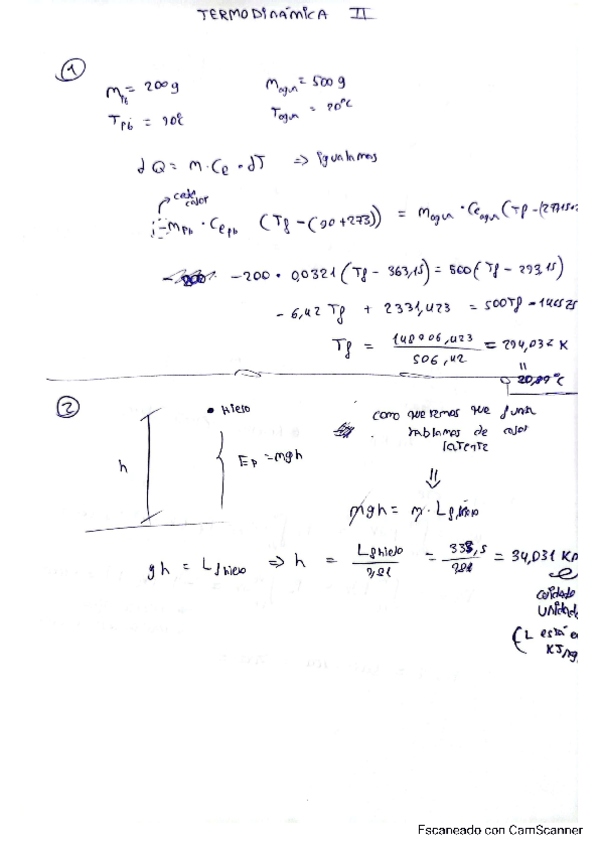 TERMODINÁMICA II
1
m_Pb = 200g   m_agua = 500 g
T_Pb = 90ºC   T_agua = 20ºC
dQ = m · Ce · dT => igualamos
cede calor
- m_Pb · Ce_Pb (Tf - (90+273)) = m_agua · Ce_agua (Tf - (
- 200 · 0,0321 (Tf - 363,15) = 500 (Tf - 293,15)
- 6,42 Tf + 2331,423 = 500Tf - 146575
Tf = 148906,423 / 506,42 = 294,032 K
=
20,89ºC
2
Hielo
como queremos que funda
hablamos de calor
latente
h
Ep = mgh
mgh = m · Lf,hielo
gh = Lf hielo => h = Lf hielo / 9,81 = 333,5 / 9,81 = 34,031 Km
cuidado
unidades
(L está en
KJ/kg
Escaneado con CamScanner